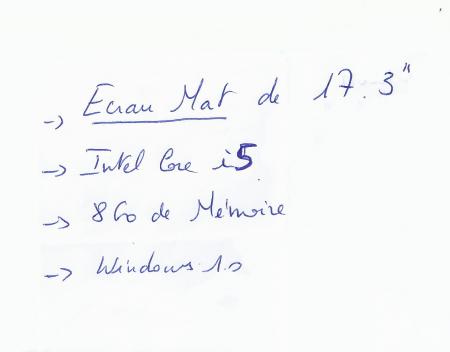 -> Ecran Mat de 17.3"
-> Intel Core i5
-> 8Go de Mémoire
-> Windows 10